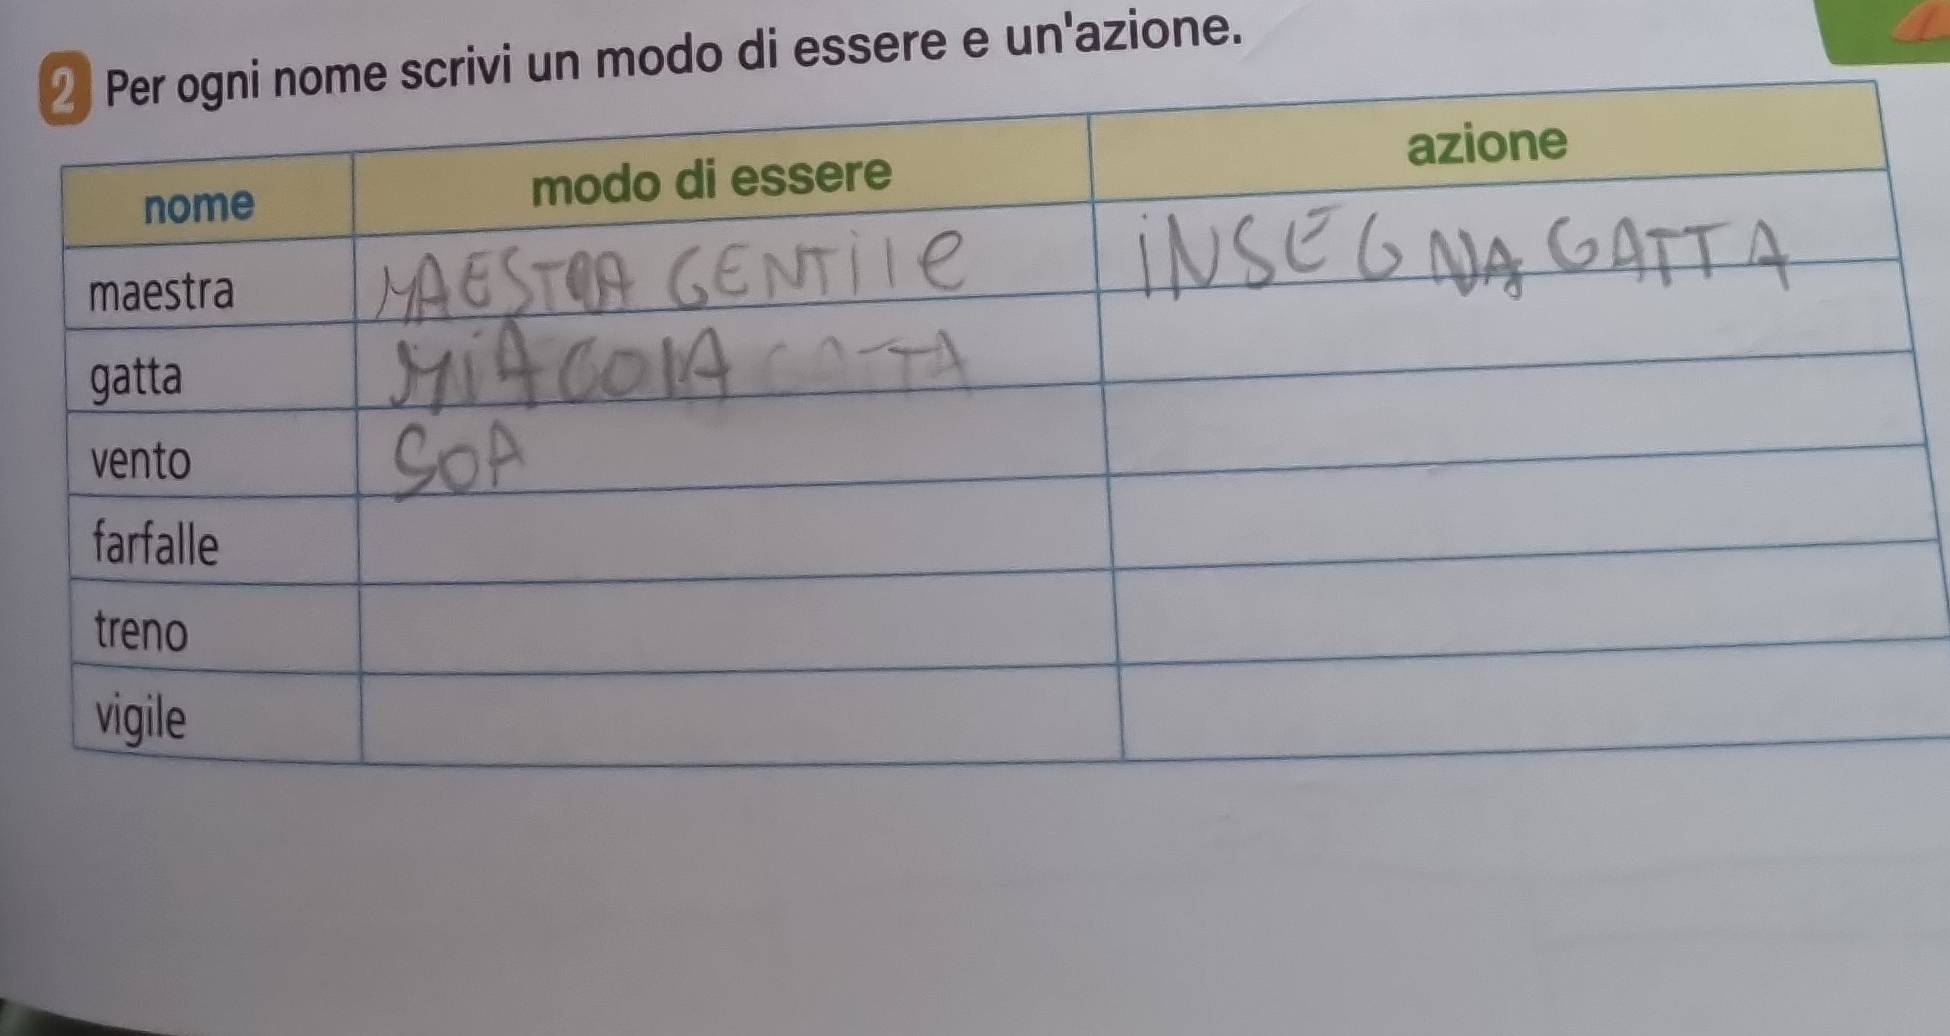 2 Per ogni nome scrivi un modo di essere e un'azione.
nome modo di essere azione
maestra MAESTRA GENTIlE INSEGNA GATTA
gatta MIACOLA GATTA
vento SOA
farfalle
treno
vigile